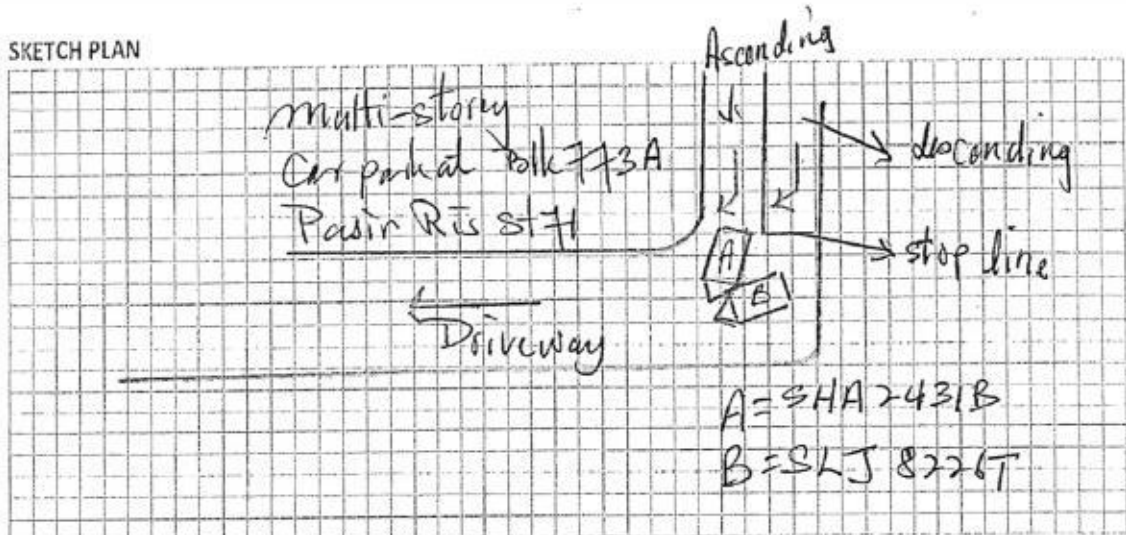 SKETCH PLAN
Ascending
Multi-storey
Car park at Blk 773A
Pasir Ris St 71
descending
stop line
A
B
Driveway
A = SHA 2431B
B = SLJ 8226T